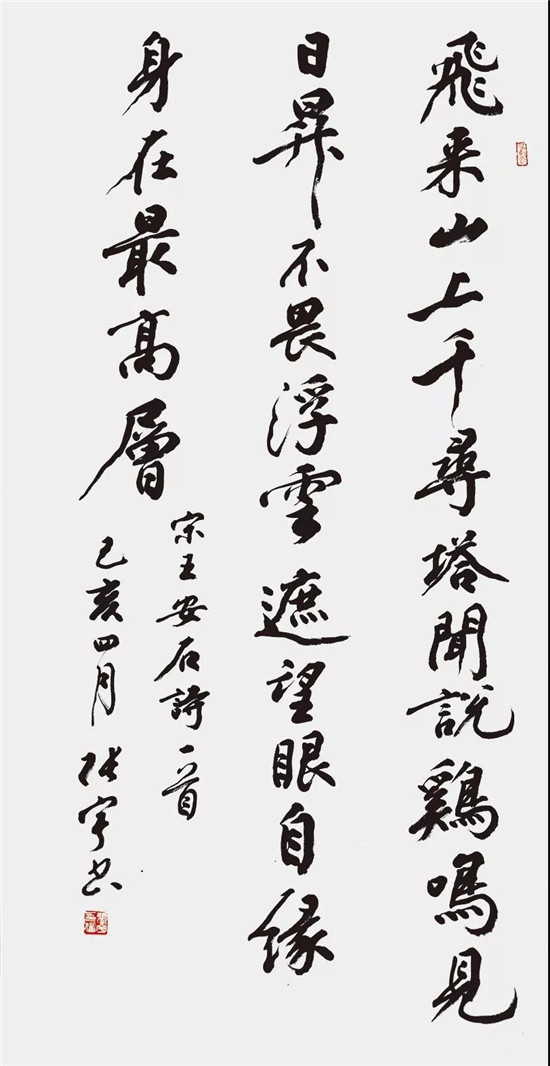 飛来山上千尋塔聞說鷄鳴見
日昇不畏浮雲遮望眼自緣
身在最高層
宋王安石詩一首
己亥四月張宇書